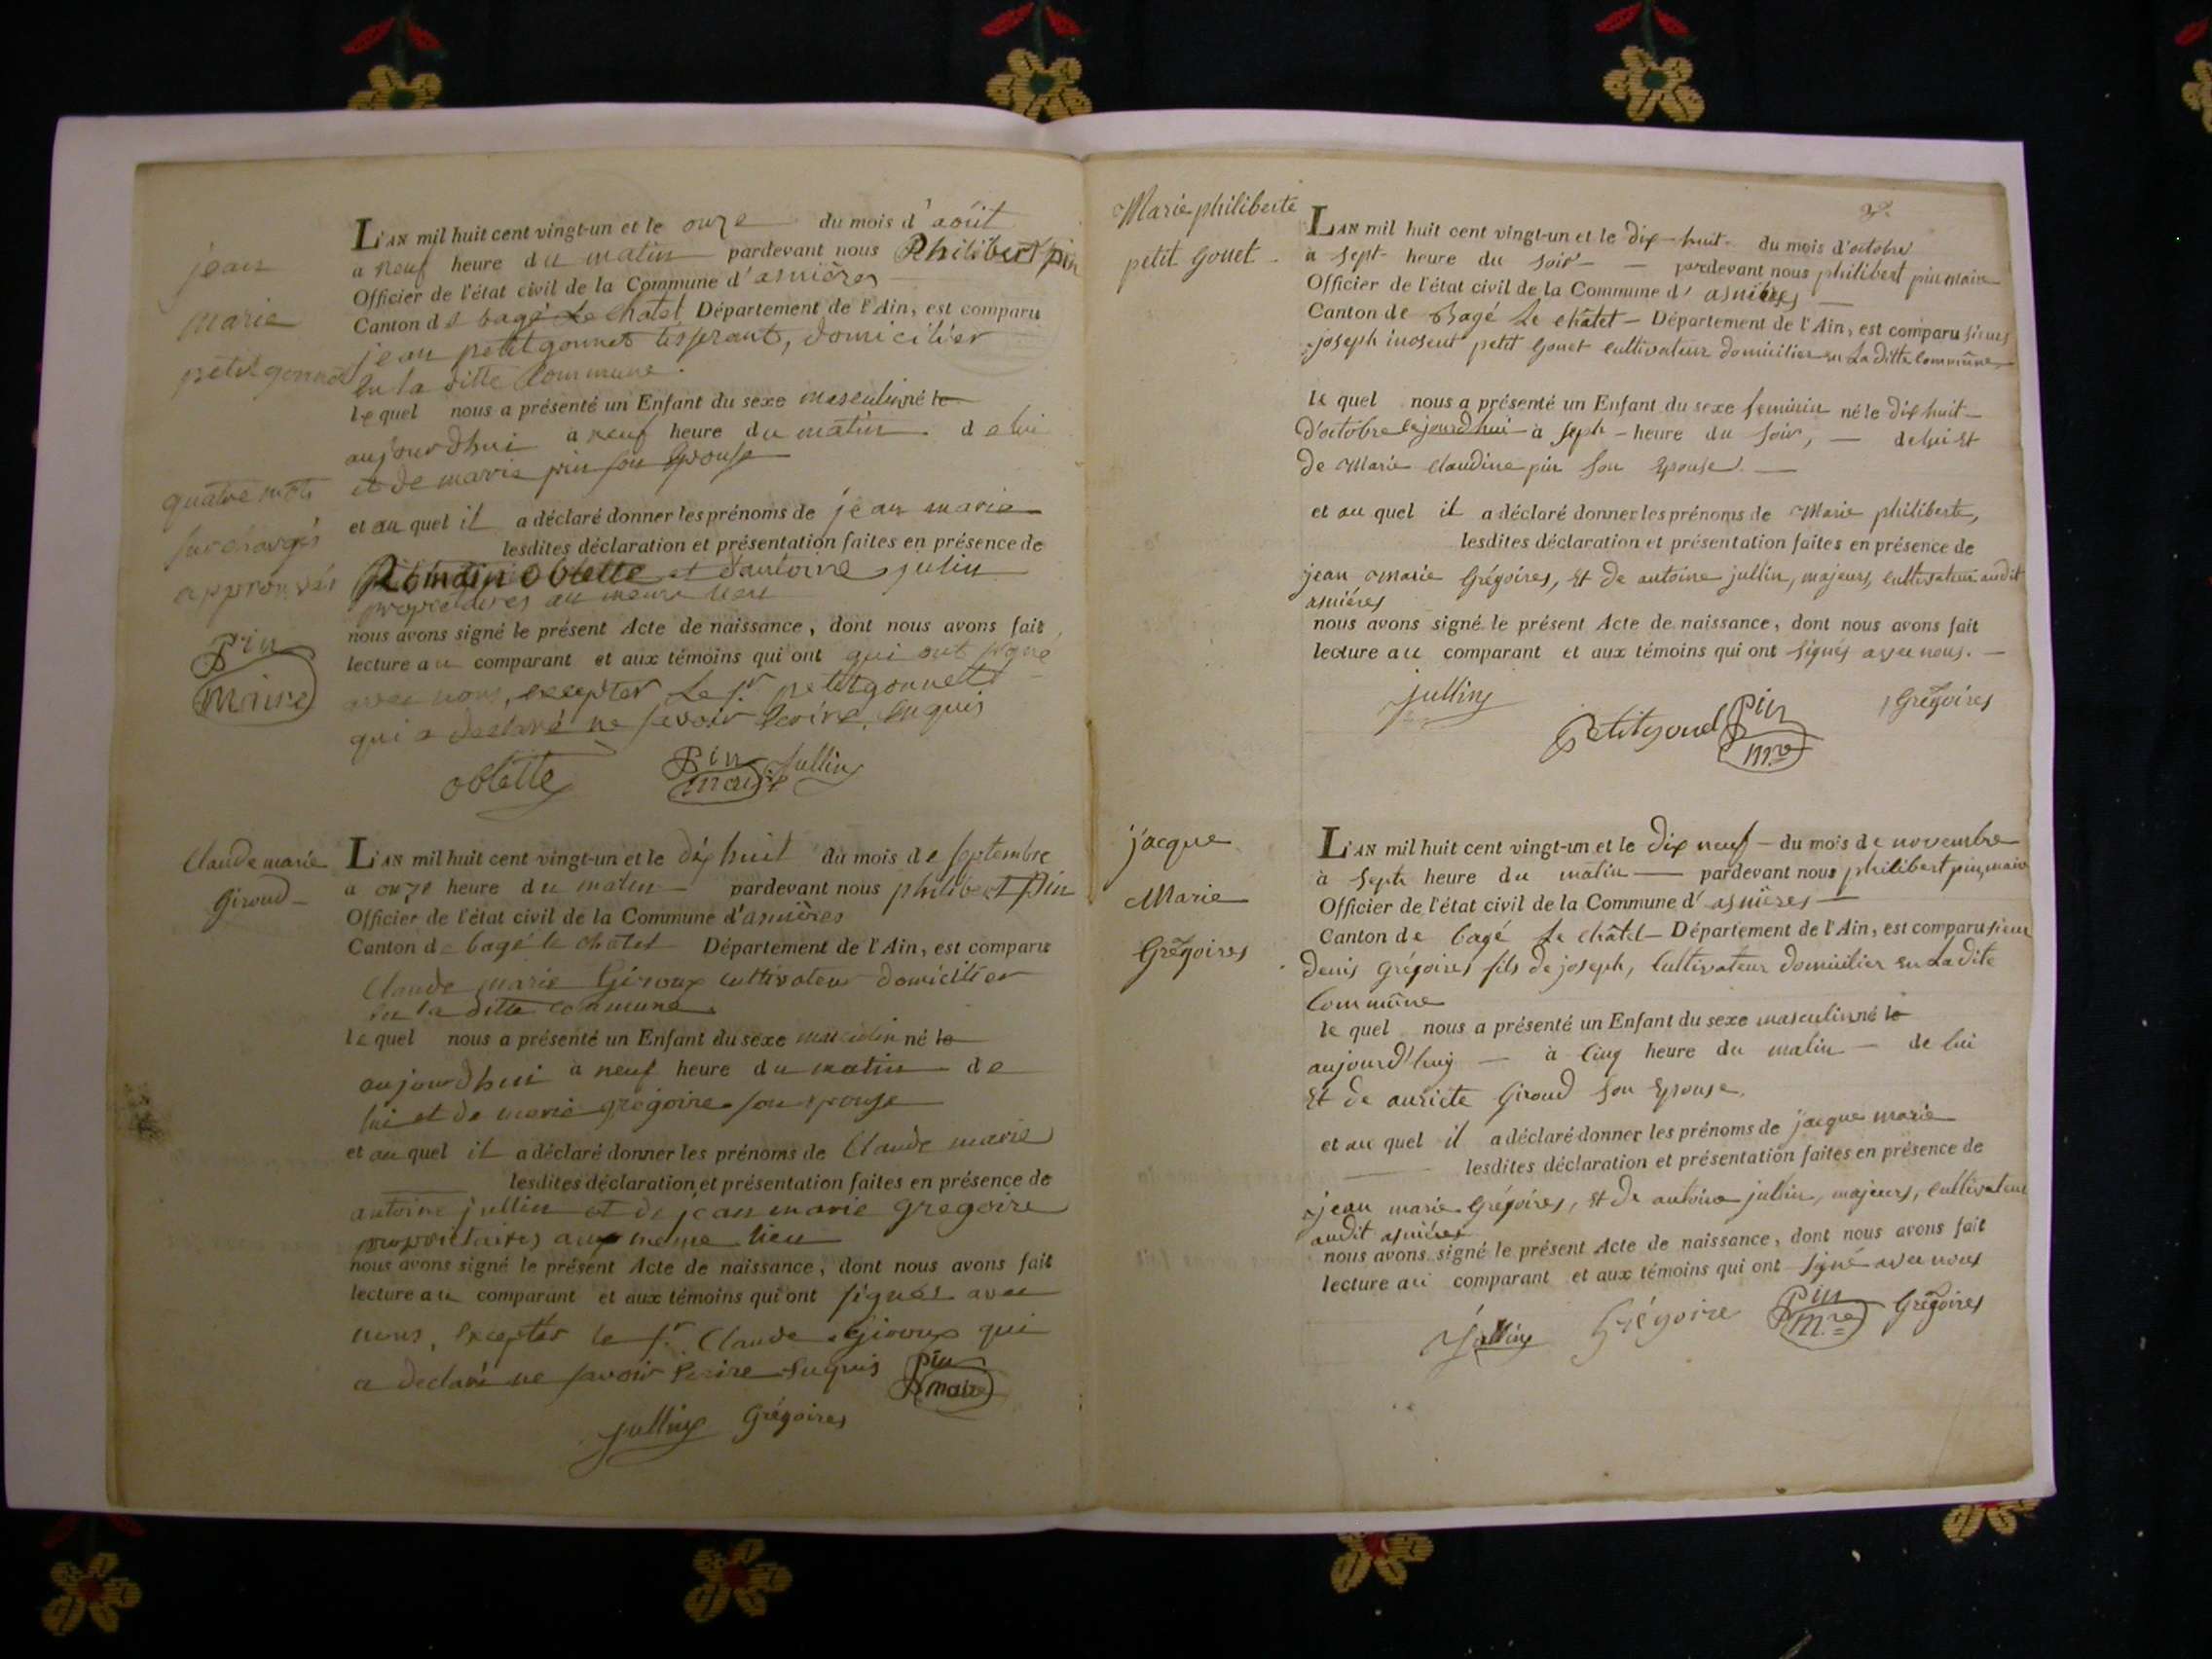 jean
marie
petit gonnet
L'AN mil huit cent vingt-un et le onze du mois d'août
a neuf heure du matin pardevant nous Philibert pin
Officier de l'état civil de la Commune d'asnières
Canton de bagé Le chatel Département de l'Ain, est comparu
jean petit gonnet tisserant, domicilier
en la ditte Commune.
lequel nous a présenté un Enfant du sexe masculin né le
aujourdhui a neuf heure du matin de lui
et de marie pin son Epouse
quatre mots
surchargés
approuvés
Pin
Maire
et au quel il a déclaré donner les prénoms de jean marie
lesdites déclaration et présentation faites en présence de
Romain oblette et d'antoine julin
proprietaires au meme lieu
nous avons signé le présent Acte de naissance, dont nous avons fait
lecture au comparant et aux témoins qui ont qui ont signé
avec nous, excepter Le sr. petit gonnett
qui a declaré ne savoir Ecrire, Enquis
oblette Pin maire Jullin
Claude marie
Giroud
L'AN mil huit cent vingt-un et le dix huit du mois de septembre
a onze heure du matin pardevant nous philibert Pin
Officier de l'état civil de la Commune d'asnières
Canton de bagé le chatel Département de l'Ain, est comparu
Claude marie Giroux cultivateur domicilier
en la ditte commune
lequel nous a présenté un Enfant du sexe masculin né le
aujourdhui a neuf heure du matin de
lui et de marie gregoire son epouse
et au quel il a déclaré donner les prénoms de Claude marie
lesdites déclaration et présentation faites en présence de
antoine jullin et de jean marie gregoire
proprietaires au meme lieu
nous avons signé le présent Acte de naissance, dont nous avons fait
lecture au comparant et aux témoins qui ont signés avec
nous, excepter le sr. Claude Giroux qui
a declaré ne savoir Ecrire Enquis Pin maire
Jullin Grégoires
Marie philiberte
petit Gonet
L'AN mil huit cent vingt-un et le dix-huit du mois d'octobre
a sept heure du soir pardevant nous philibert pin maire
Officier de l'état civil de la Commune d'asnières
Canton de Bagé Le châtel Département de l'Ain, est comparu sieurs
joseph inosent petit Gonet cultivateur domicilier en La ditte commûne
le quel nous a présenté un Enfant du sexe feminin né le dix huit
d'octobre cejourdhui à seph heure du soir, de lui Et
de Marie Claudine pin son Epouse
et au quel il a déclaré donner les prénoms de Marie philiberte,
lesdites déclaration et présentation faites en présence de
jean Marie Grégoires, Et de antoine jullin, majeurs, cultivateur audit
asniéres
nous avons signé le présent Acte de naissance, dont nous avons fait
lecture au comparant et aux témoins qui ont signés avec nous.
Jullin Petitgonel Pin mre Grégoires
jacque
Marie
Grégoires
L'AN mil huit cent vingt-un et le dix neuf du mois de novembre
à septe heure du matin pardevant nous philibert pin, maire
Officier de l'état civil de la Commune d'asniéres
Canton de bagé Le châtel Département de l'Ain, est comparu sieur
denis Grégoires fils de joseph, Cultivateur domicilier en La dite
Commûne
le quel nous a présenté un Enfant du sexe masculin né le
aujourd'huy à cinq heure du matin de lui
Et de auricte Giroud son Epouse,
et au quel il a déclaré donner les prénoms de jacque marie
lesdites déclaration et présentation faites en présence de
jean marie Grégoires, Et de antoine jullin, majeurs, cultivateur
audit asniéres
nous avons signé le présent Acte de naissance, dont nous avons fait
lecture au comparant et aux témoins qui ont signé avec nous
Jullin Grégoire Pin Mre Grégoires